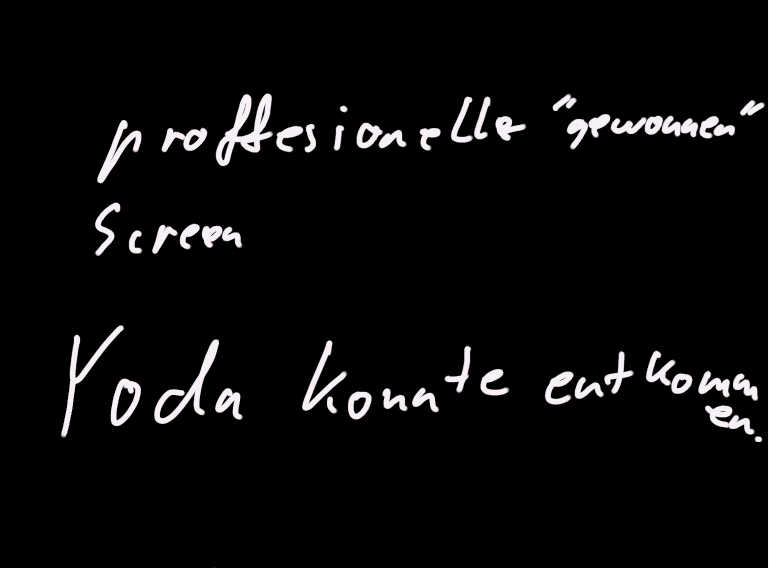 proffesionelle "gewonnen"
Screen
Yoda konnte entkomm
en.